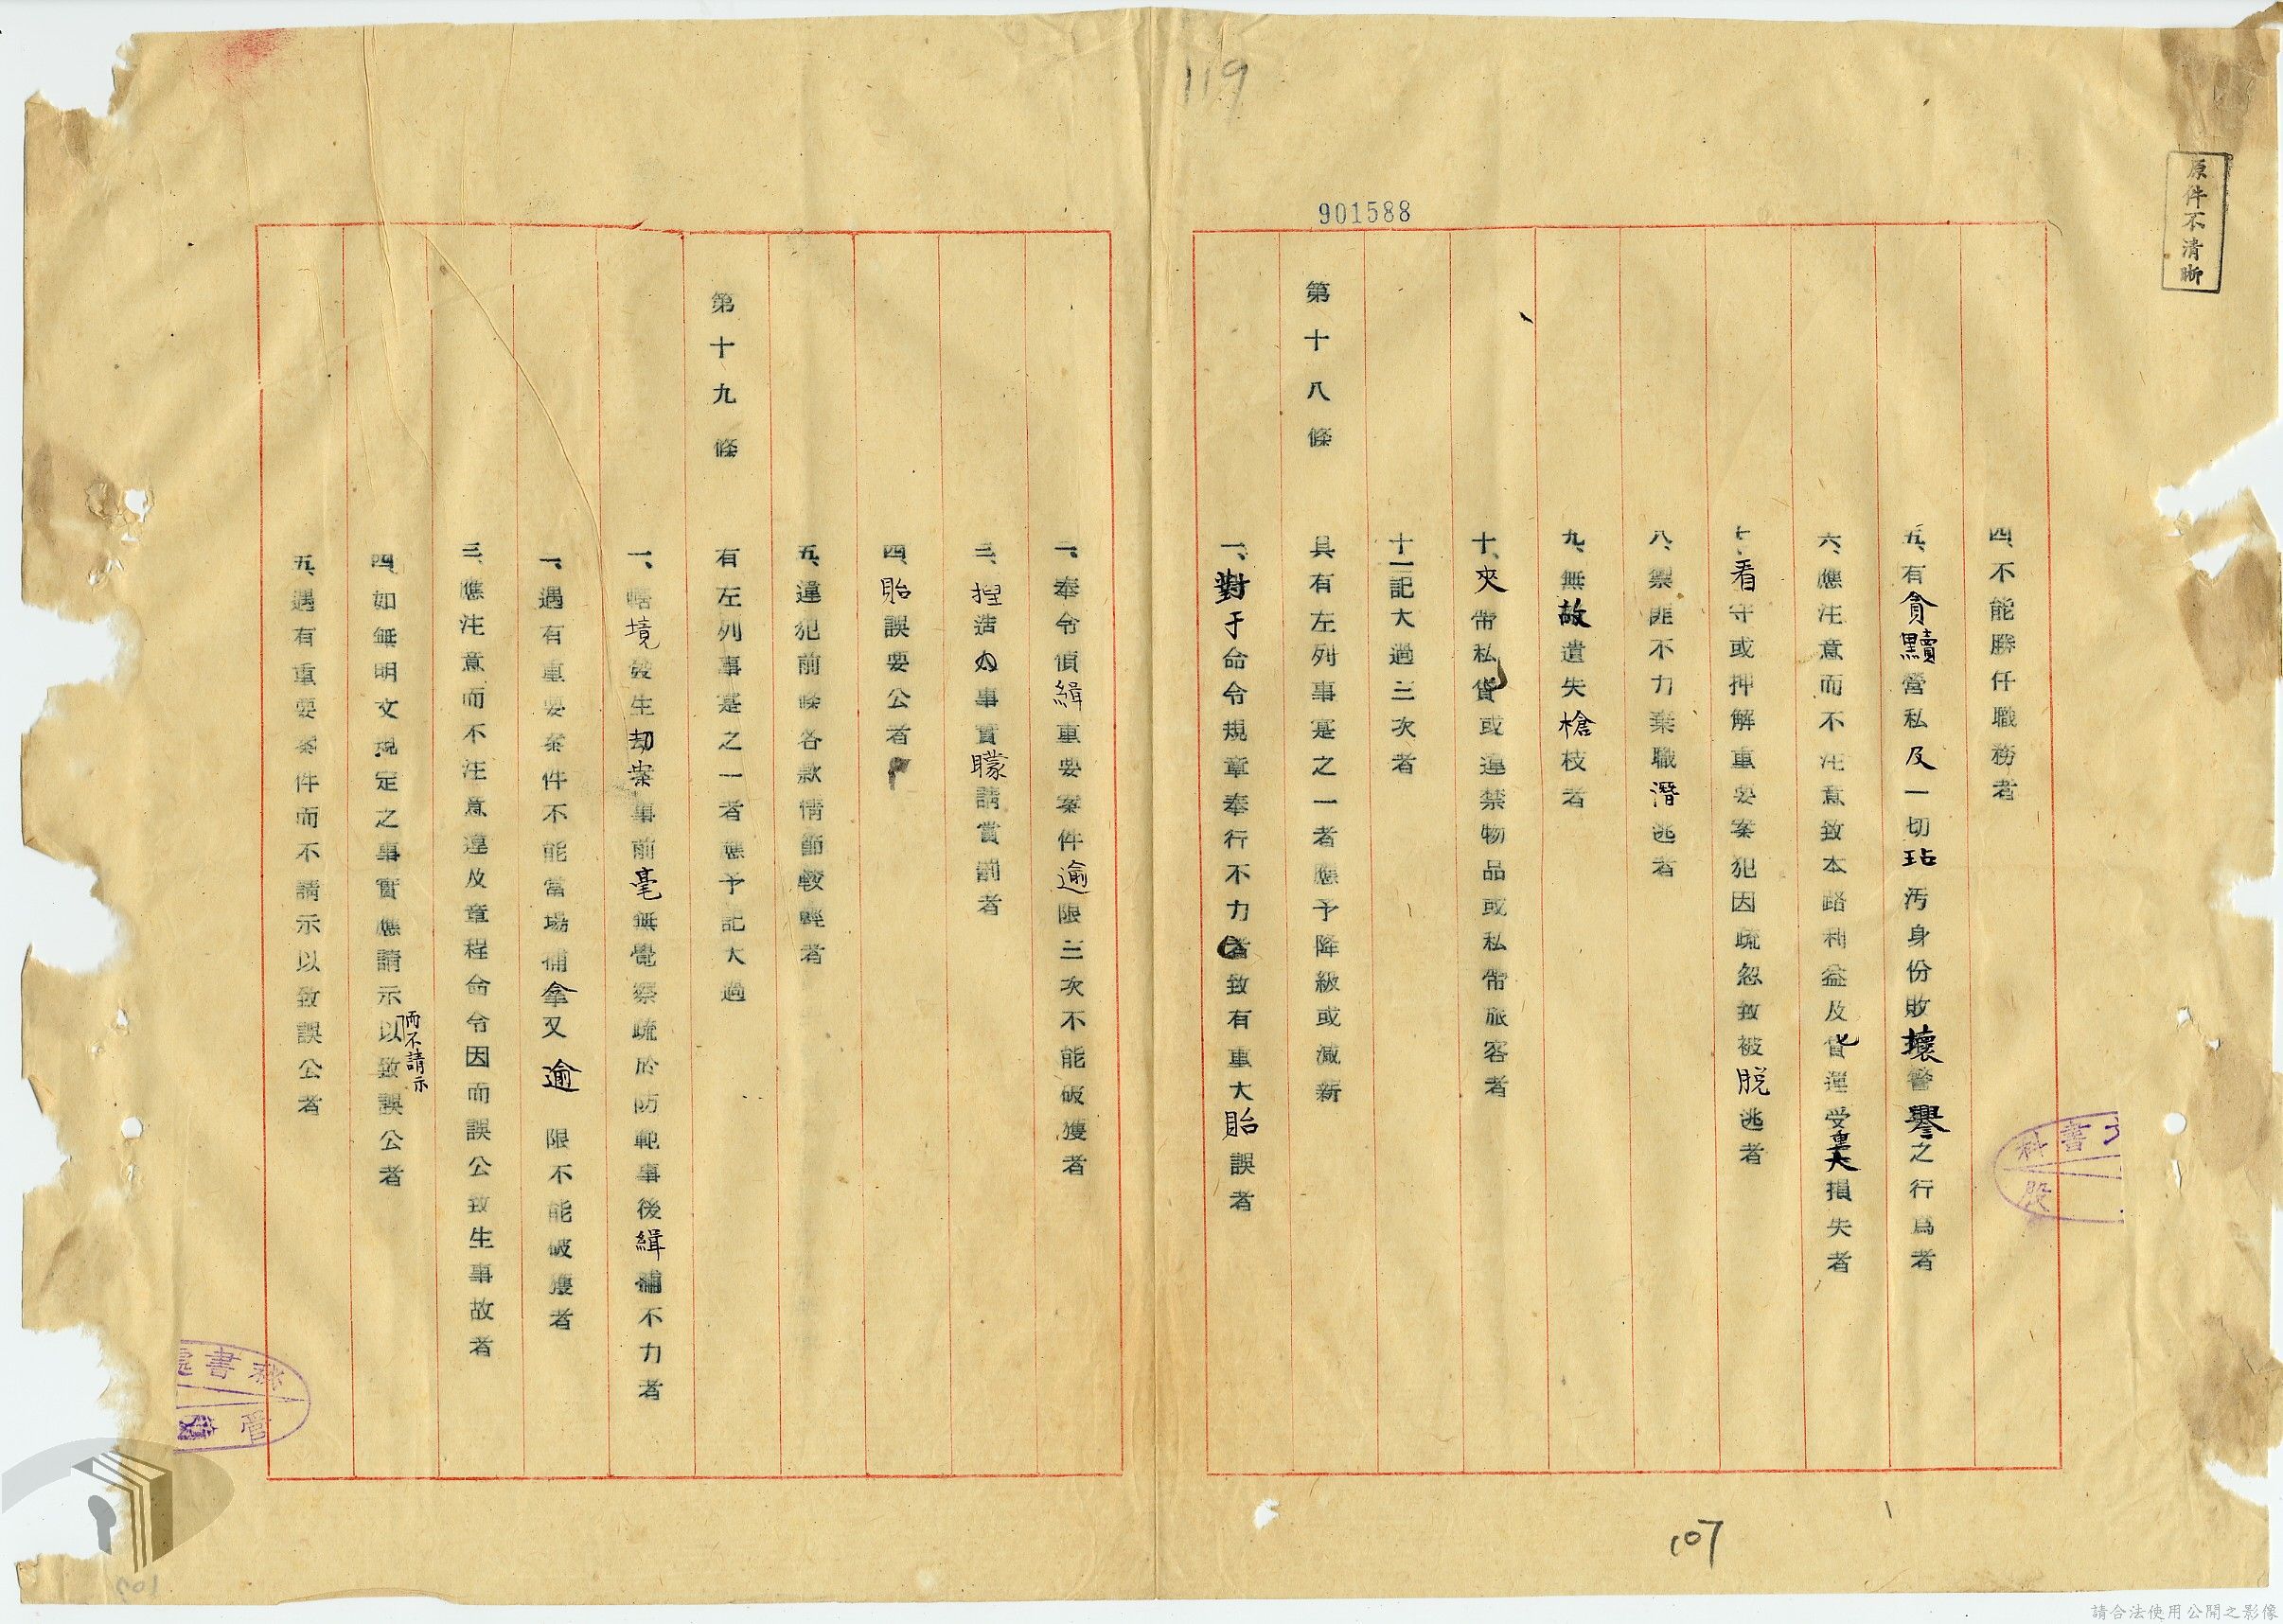 119
901588
原件不清晰
四、不能勝任職務者
五、有貪黷營私及一切玷污身份敗壞警譽之行爲者
六、應注意而不注意致本路利益及貨運受重大損失者
七、看守或押解重要案犯因疏忽致被脫逃者
八、禦匪不力棄職潛逃者
九、無故遺失槍枝者
十、夾帶私貨或違禁物品或私帶旅客者
十一記大過三次者
第十八條 具有左列事寔之一者應予降級或減薪
一、對于命令規章奉行不力者致有重大貽誤者
二、奉令偵緝重要案件逾限三次不能破獲者
三、捏造事實矇請賞罰者
四、貽誤要公者
五、違犯前條各款情節較輕者
第十九條 有左列事寔之一者應予記大過
一、轄境發生刧案事前毫無覺察疏於防範事後緝捕不力者
二、遇有重要案件不能當場捕拿又逾限不能破獲者
三、應注意而不注意違反章程命令因而誤公致生事故者
四、如無明文規定之事實應請示而不請示以致誤公者
五、遇有重要案件而不請示以致誤公者
書科
股
秘書處
管
107
請合法使用公開之影像